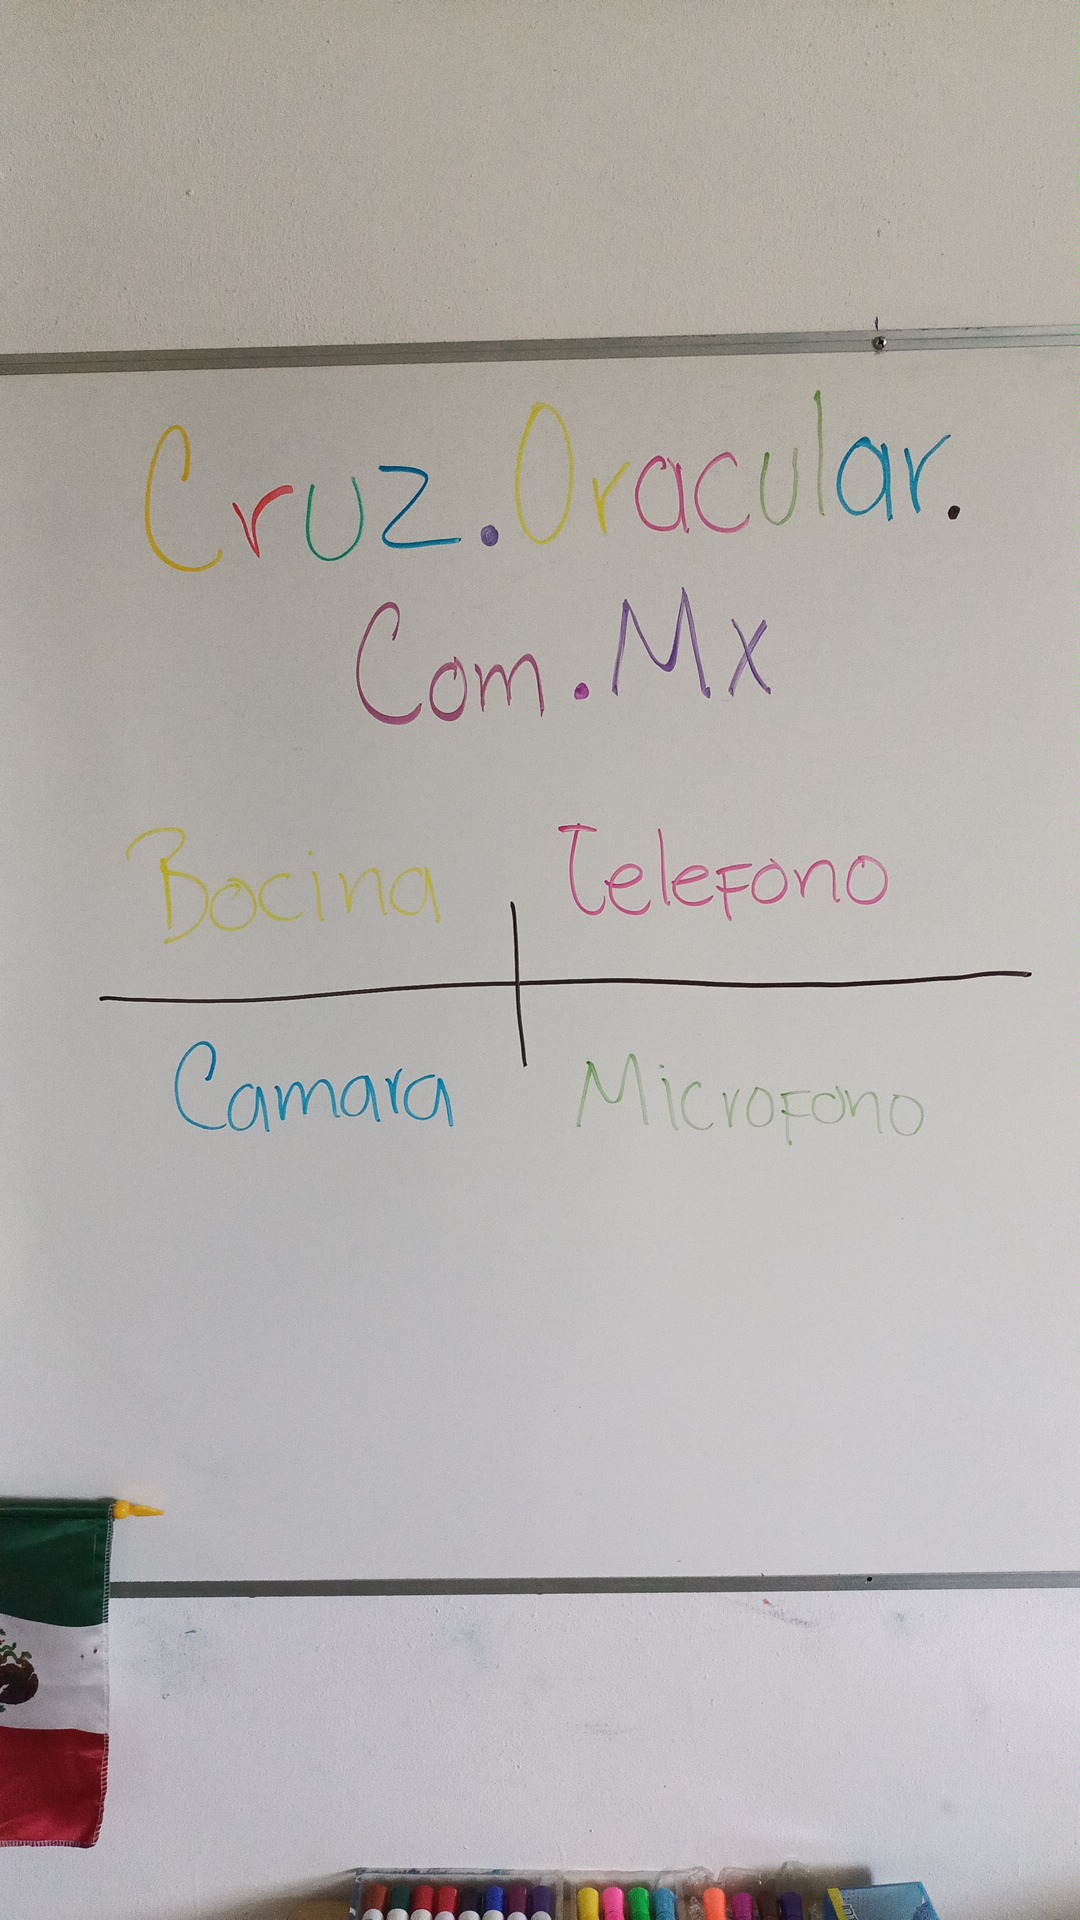 Cruz.Oracular.
Com.Mx
Bocina Telefono
Camara Microfono